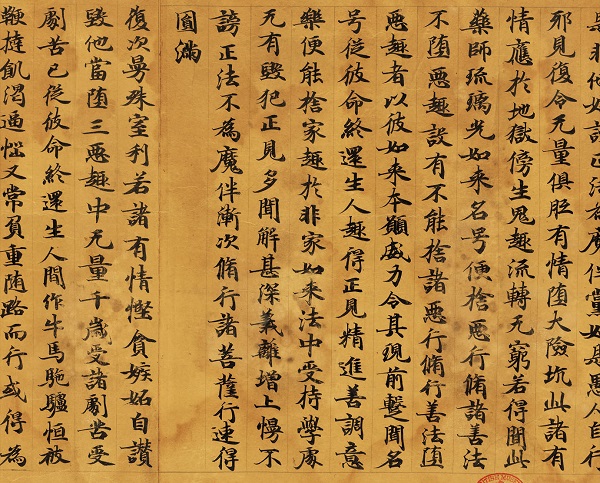 是非他嫌謗正法為魔伴黨如是愚人自行
邪見復令无量俱胝有情堕大險坑此諸有
情應於地獄傍生鬼趣流轉无窮若得聞此
藥師琉璃光如来名号便捨惡行脩諸善法
不堕惡趣設有不能捨諸惡行脩行善法堕
惡趣者以彼如来本願威力令其現前蹔聞名
号從彼命終還生人趣得正見精進善調意
樂便能捨家趣於非家如来法中受持學處
无有毀犯正見多聞解甚深義離增上慢不
謗正法不為魔伴漸次脩行諸菩薩行速得
圓滿
復次曼殊室利若諸有情慳貪嫉妬自讚
毀他當堕三惡趣中无量千歲受諸劇苦受
劇苦已從彼命終還生人間作牛馬駞驢恒被
鞭撻飢渴逼惱又常負重随路而行或得為